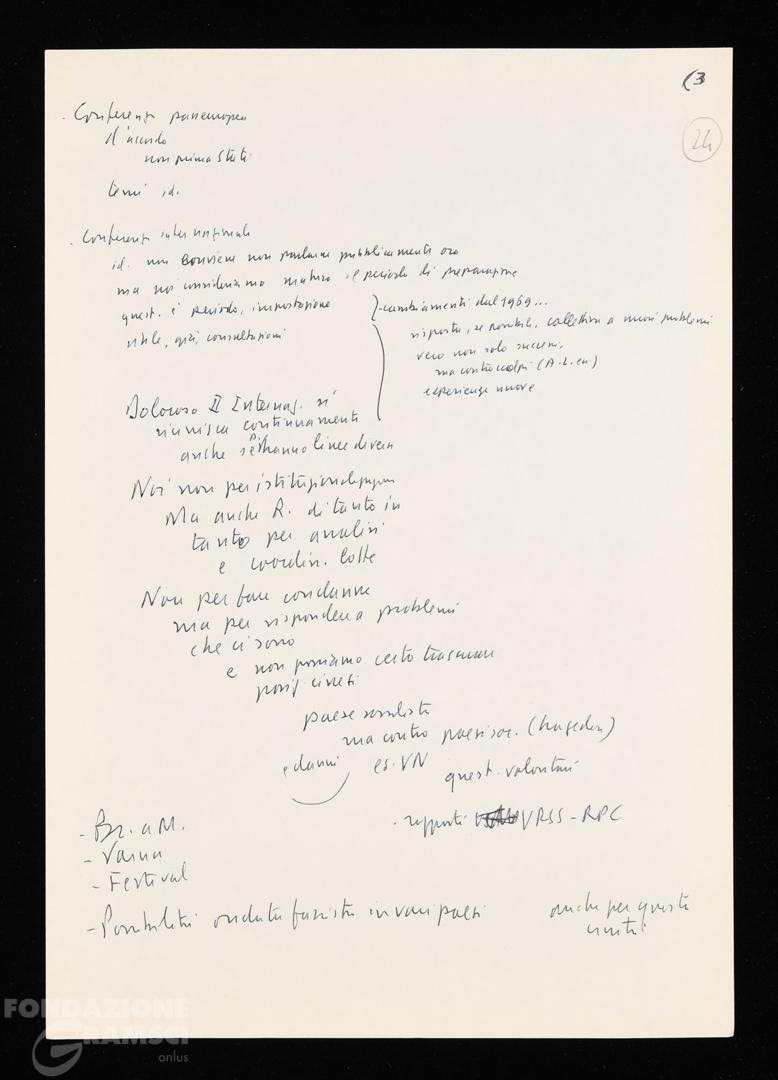 (3
24
- Conferenza paneuropea
d'accordo
non prima Stati
temi id.
- Conferenza internazionale
id. non conviene non parlarne pubblicamente ora
ma noi consideriamo maturo il periodo di preparazione
quest. è periodo, impostazione
utile, quindi, consultazioni
- cambiamenti dal 1969...
risposta, se possibile, collettiva a nuovi problemi
vero non solo successi,
ma contro colpi (A.L. ecc.)
esperienze nuove
Doloroso II Internaz. si
riunisca continuamente
anche se PS hanno linee diverse
Noi non per
Ma anche R. di tanto in
tanto per analisi
e coordin. lotte
Non per fare condanne
ma per rispondere a problemi
che ci sono
e non possiamo certo trascurare
posiz. cinesi
paese socialista
ma contro paesi soc. (tragedia)
e danni es. VN
quest. volontari
- rapporti URSS - RPC
- Br. a M.
- Varna
- Festival
- Possibilità ondata fascista in vari paesi
anche per questo
unità!
FONDAZIONE
GRAMSCI
onlus